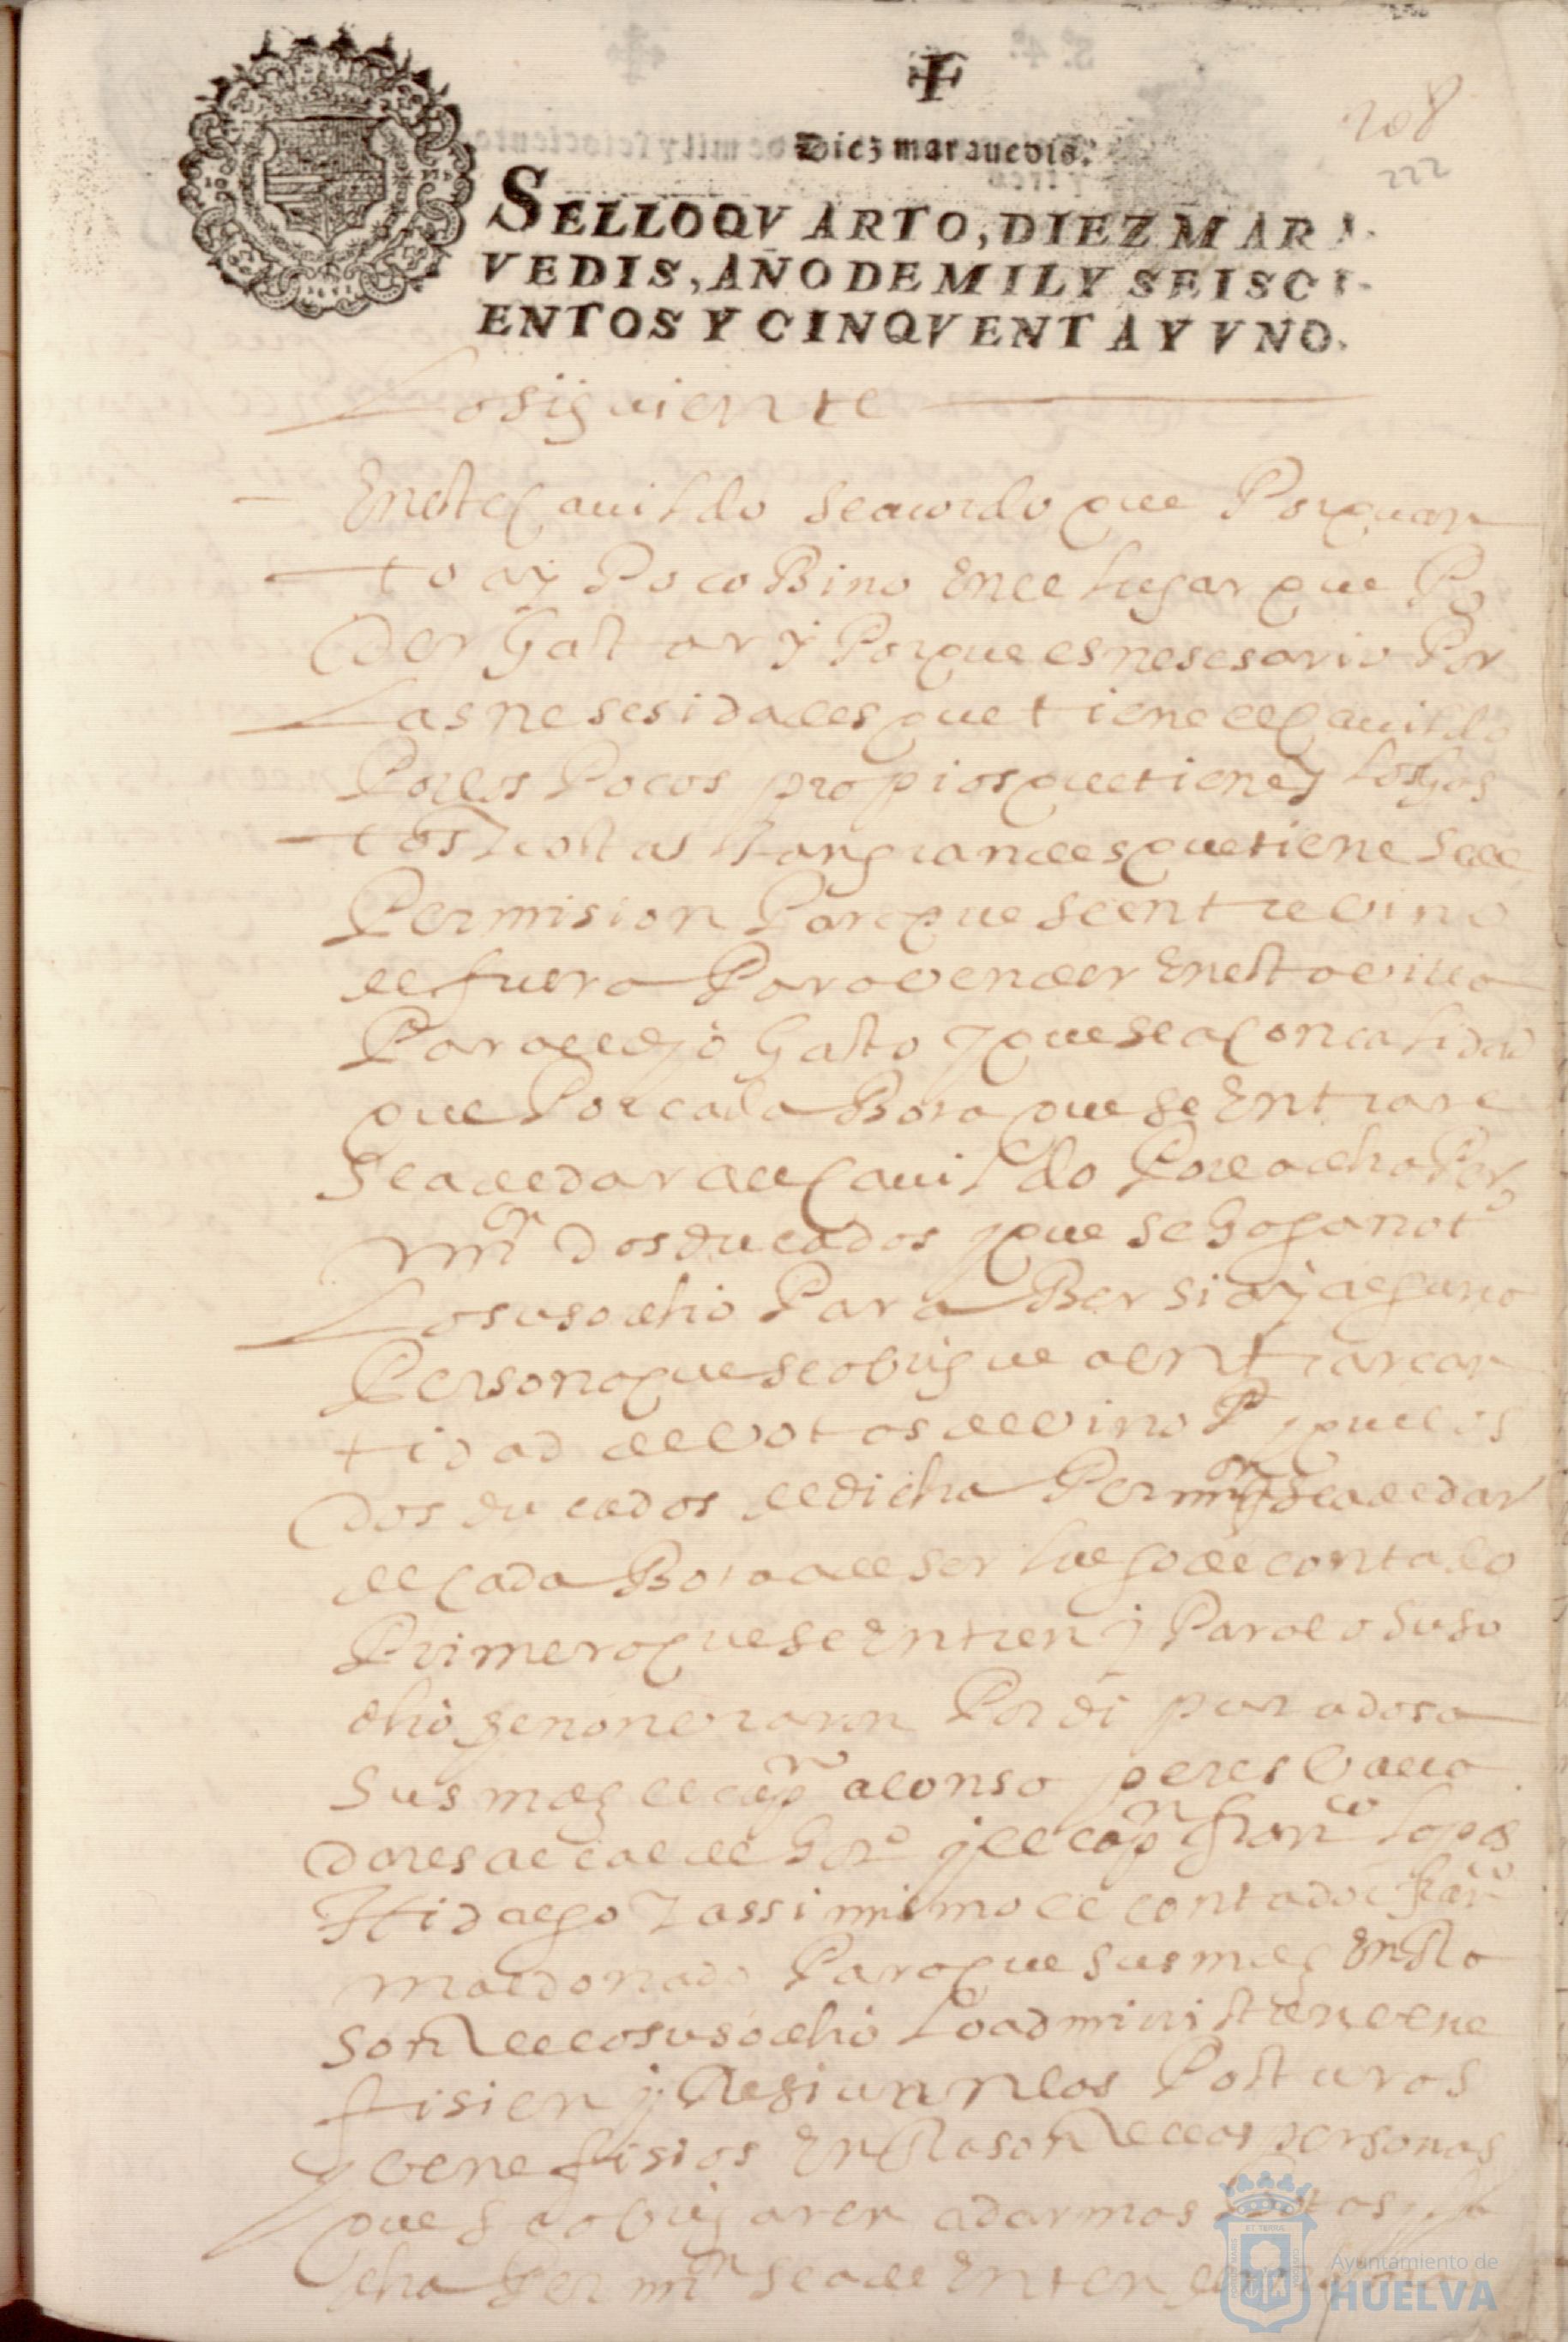 208
222
Diez marauedis.
SELLO QVARTO, DIEZ MARA-
VEDIS, AÑO DE MIL Y SEISCI-
ENTOS Y CINQVENTA Y VNO.
Lo siguiente
En este Cauildo se acordo que Por quan
to ay Poco Bino en el lugar que Po
der Gastar y Porque es nesesario Por
Las nesesidades que tiene el Cauildo
Por los Pocos propios que tiene y los gas
tos y costas tan grandes que tiene se de
Permision Para que se entre vino
de fuera Para vender en esta villa
Para el dho Gasto y que sea Con calidad
que Por cada Bota que se Entrare
se a de dar al Cauildo Por la dha Per
min dos ducados y que se Hagan not
Lo susodho Para Ber si ay alguna
Persona que se obligue a entrar can
tidad de votas de vino P y que los
dos ducados de dicha Permin se a de dar
de Cada Bota a de ser luego de contado
Primero que se Entren y Para lo suso
dho se nonbraron Por diputados a
sus mds el capn alonso peres Valla
dares alcalde Hordo y el capn franco Lopes
Hidalgo y assimismo el contador franco
maldonado Para que sus mds En Ra
son de lo susodho lo administren vene
fisien y Resiuan las Posturas
y venefisios En Rason de las personas
que se obligaren a dar mas votas
dha Permin se a de Enten
Ayuntamiento de
HUELVA